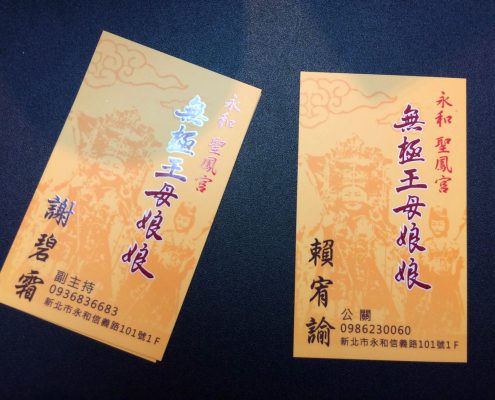 永和 聖鳳宮
無極王母娘娘
謝碧霜
副主持
0936836683
新北市永和信義路101號1F
永和 聖鳳宮
無極王母娘娘
賴宥諭
公關
0986230060
新北市永和信義路101號1F